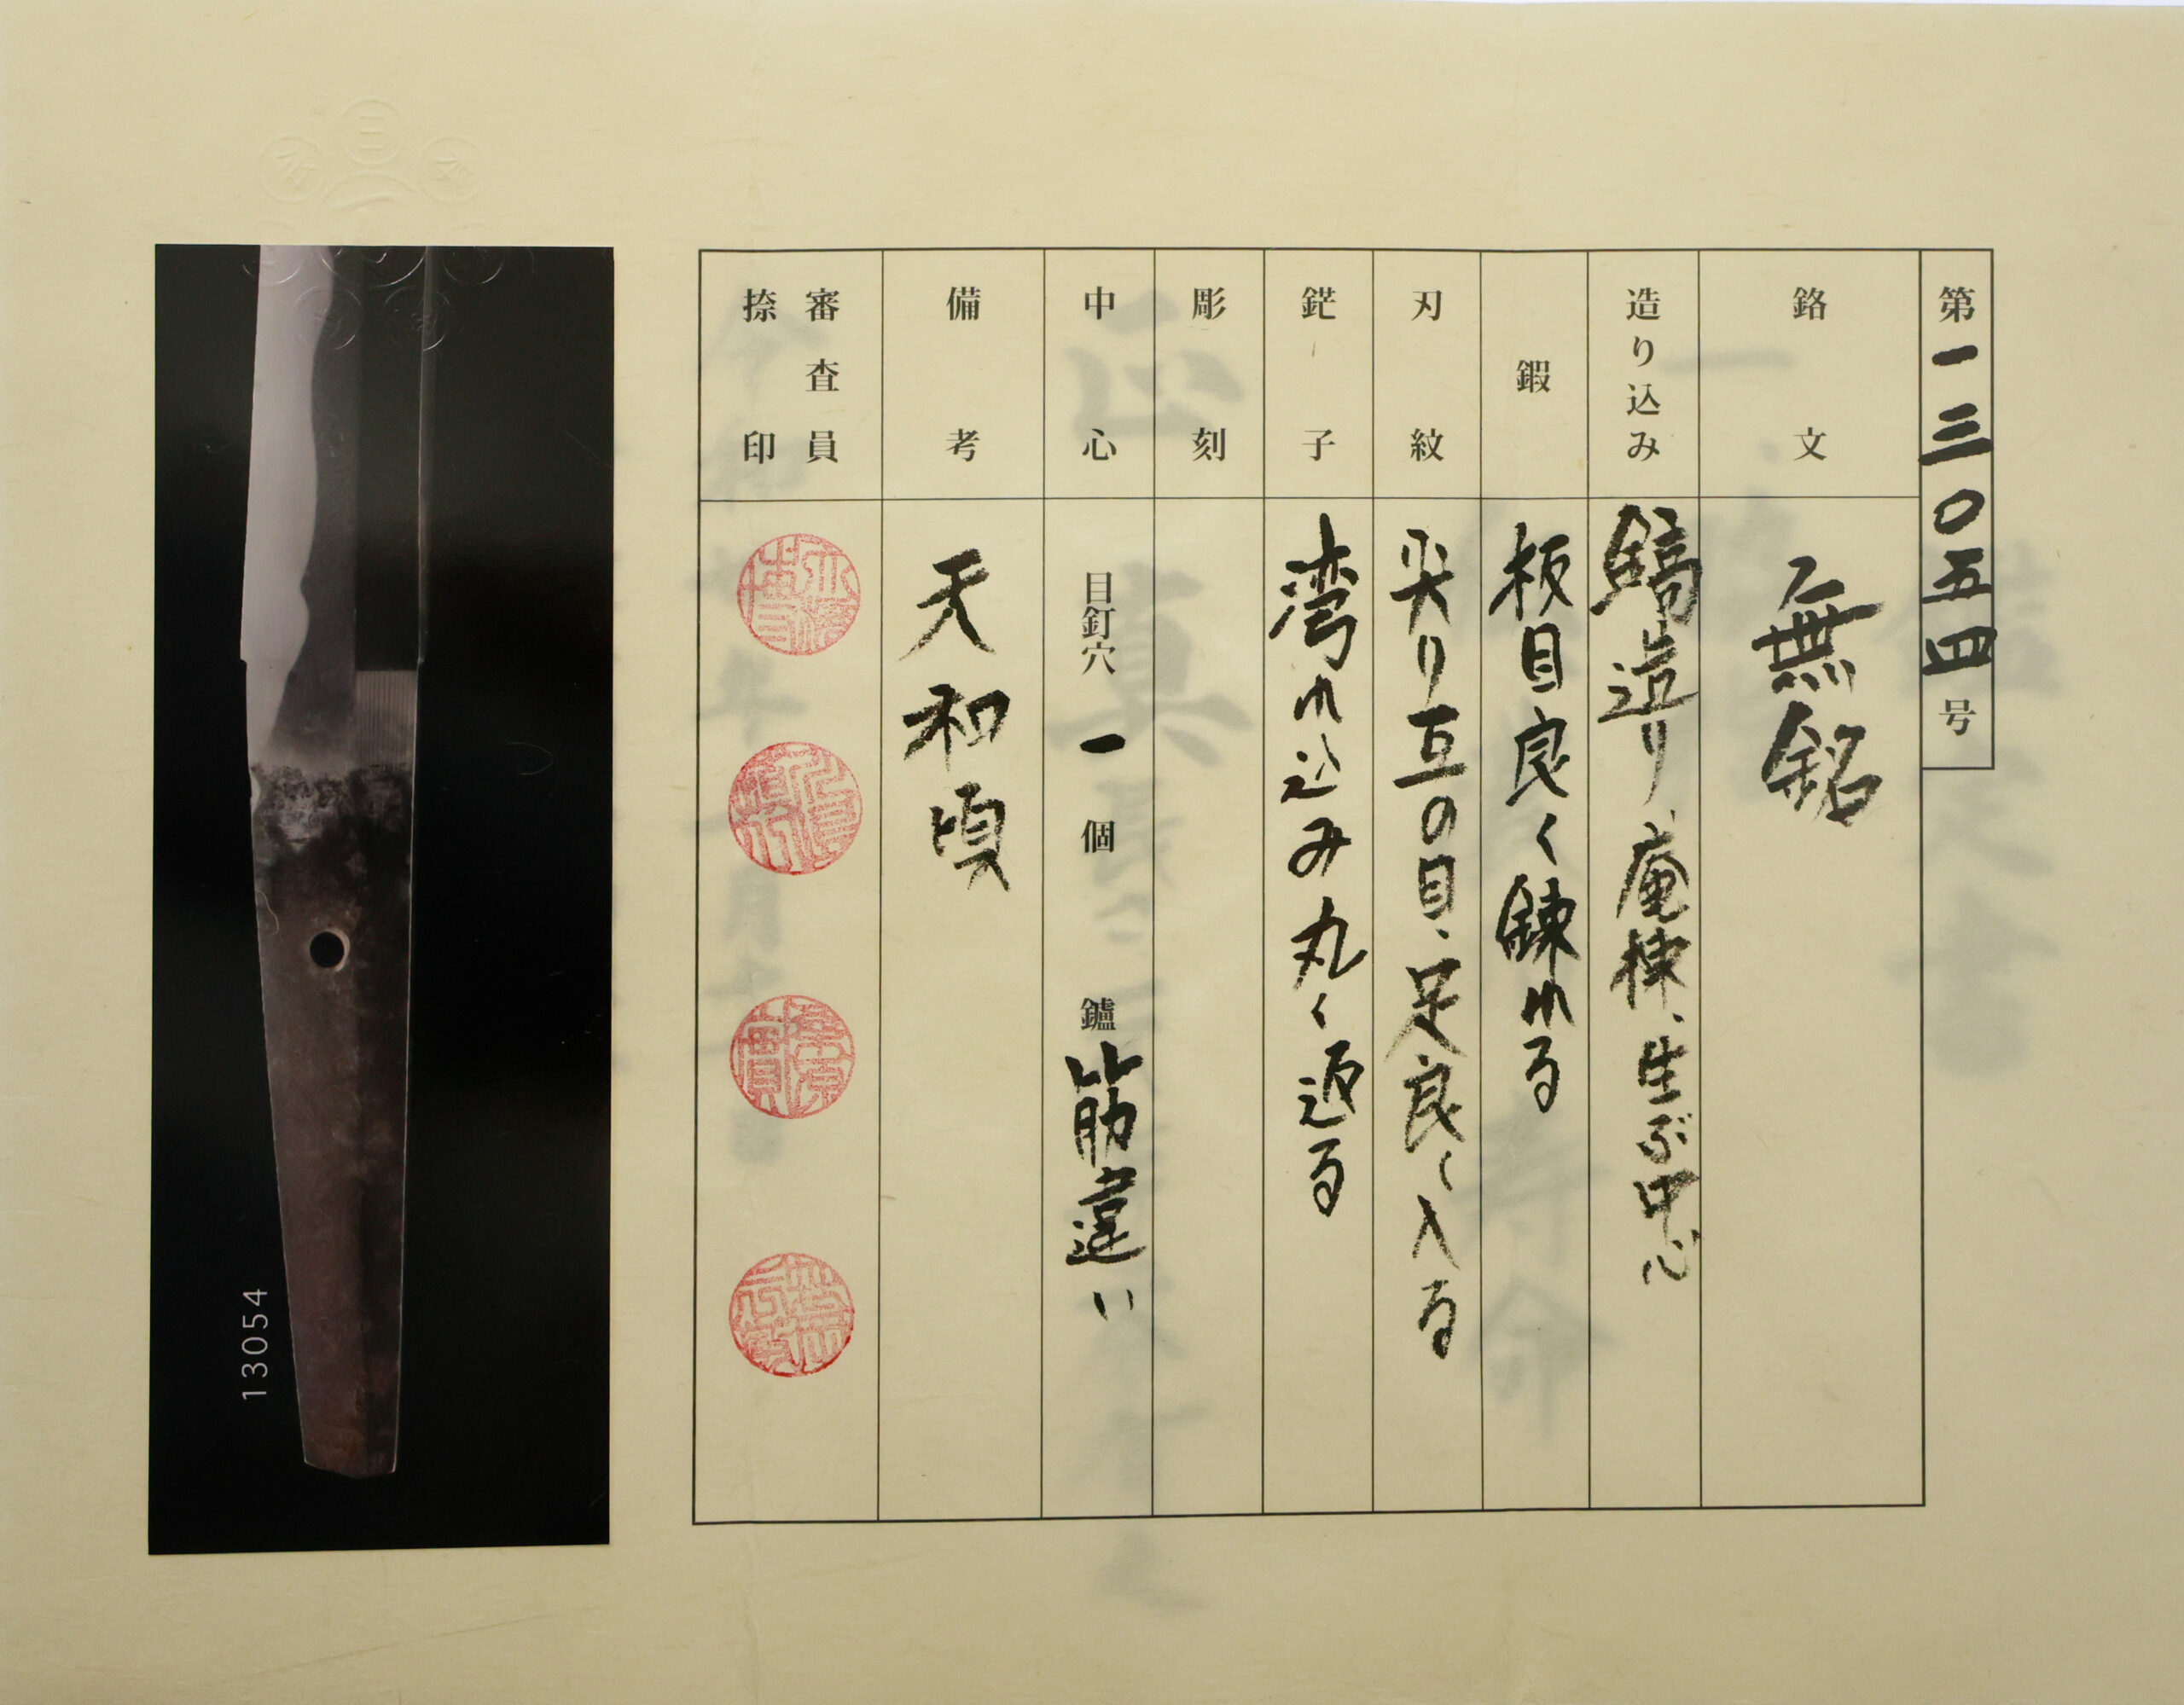 第一三〇五四号
銘文
無銘
造り込み
鎬造り、庵棟、生ぶ中心
鍜
板目良く錬れる
刃紋
尖り互の目、足良く入る
鋩子
湾れ込み丸く返る
彫刻
中心
目釘穴 一 個 鑪 筋違い
備考
天和頃
審査員
捺印
13054